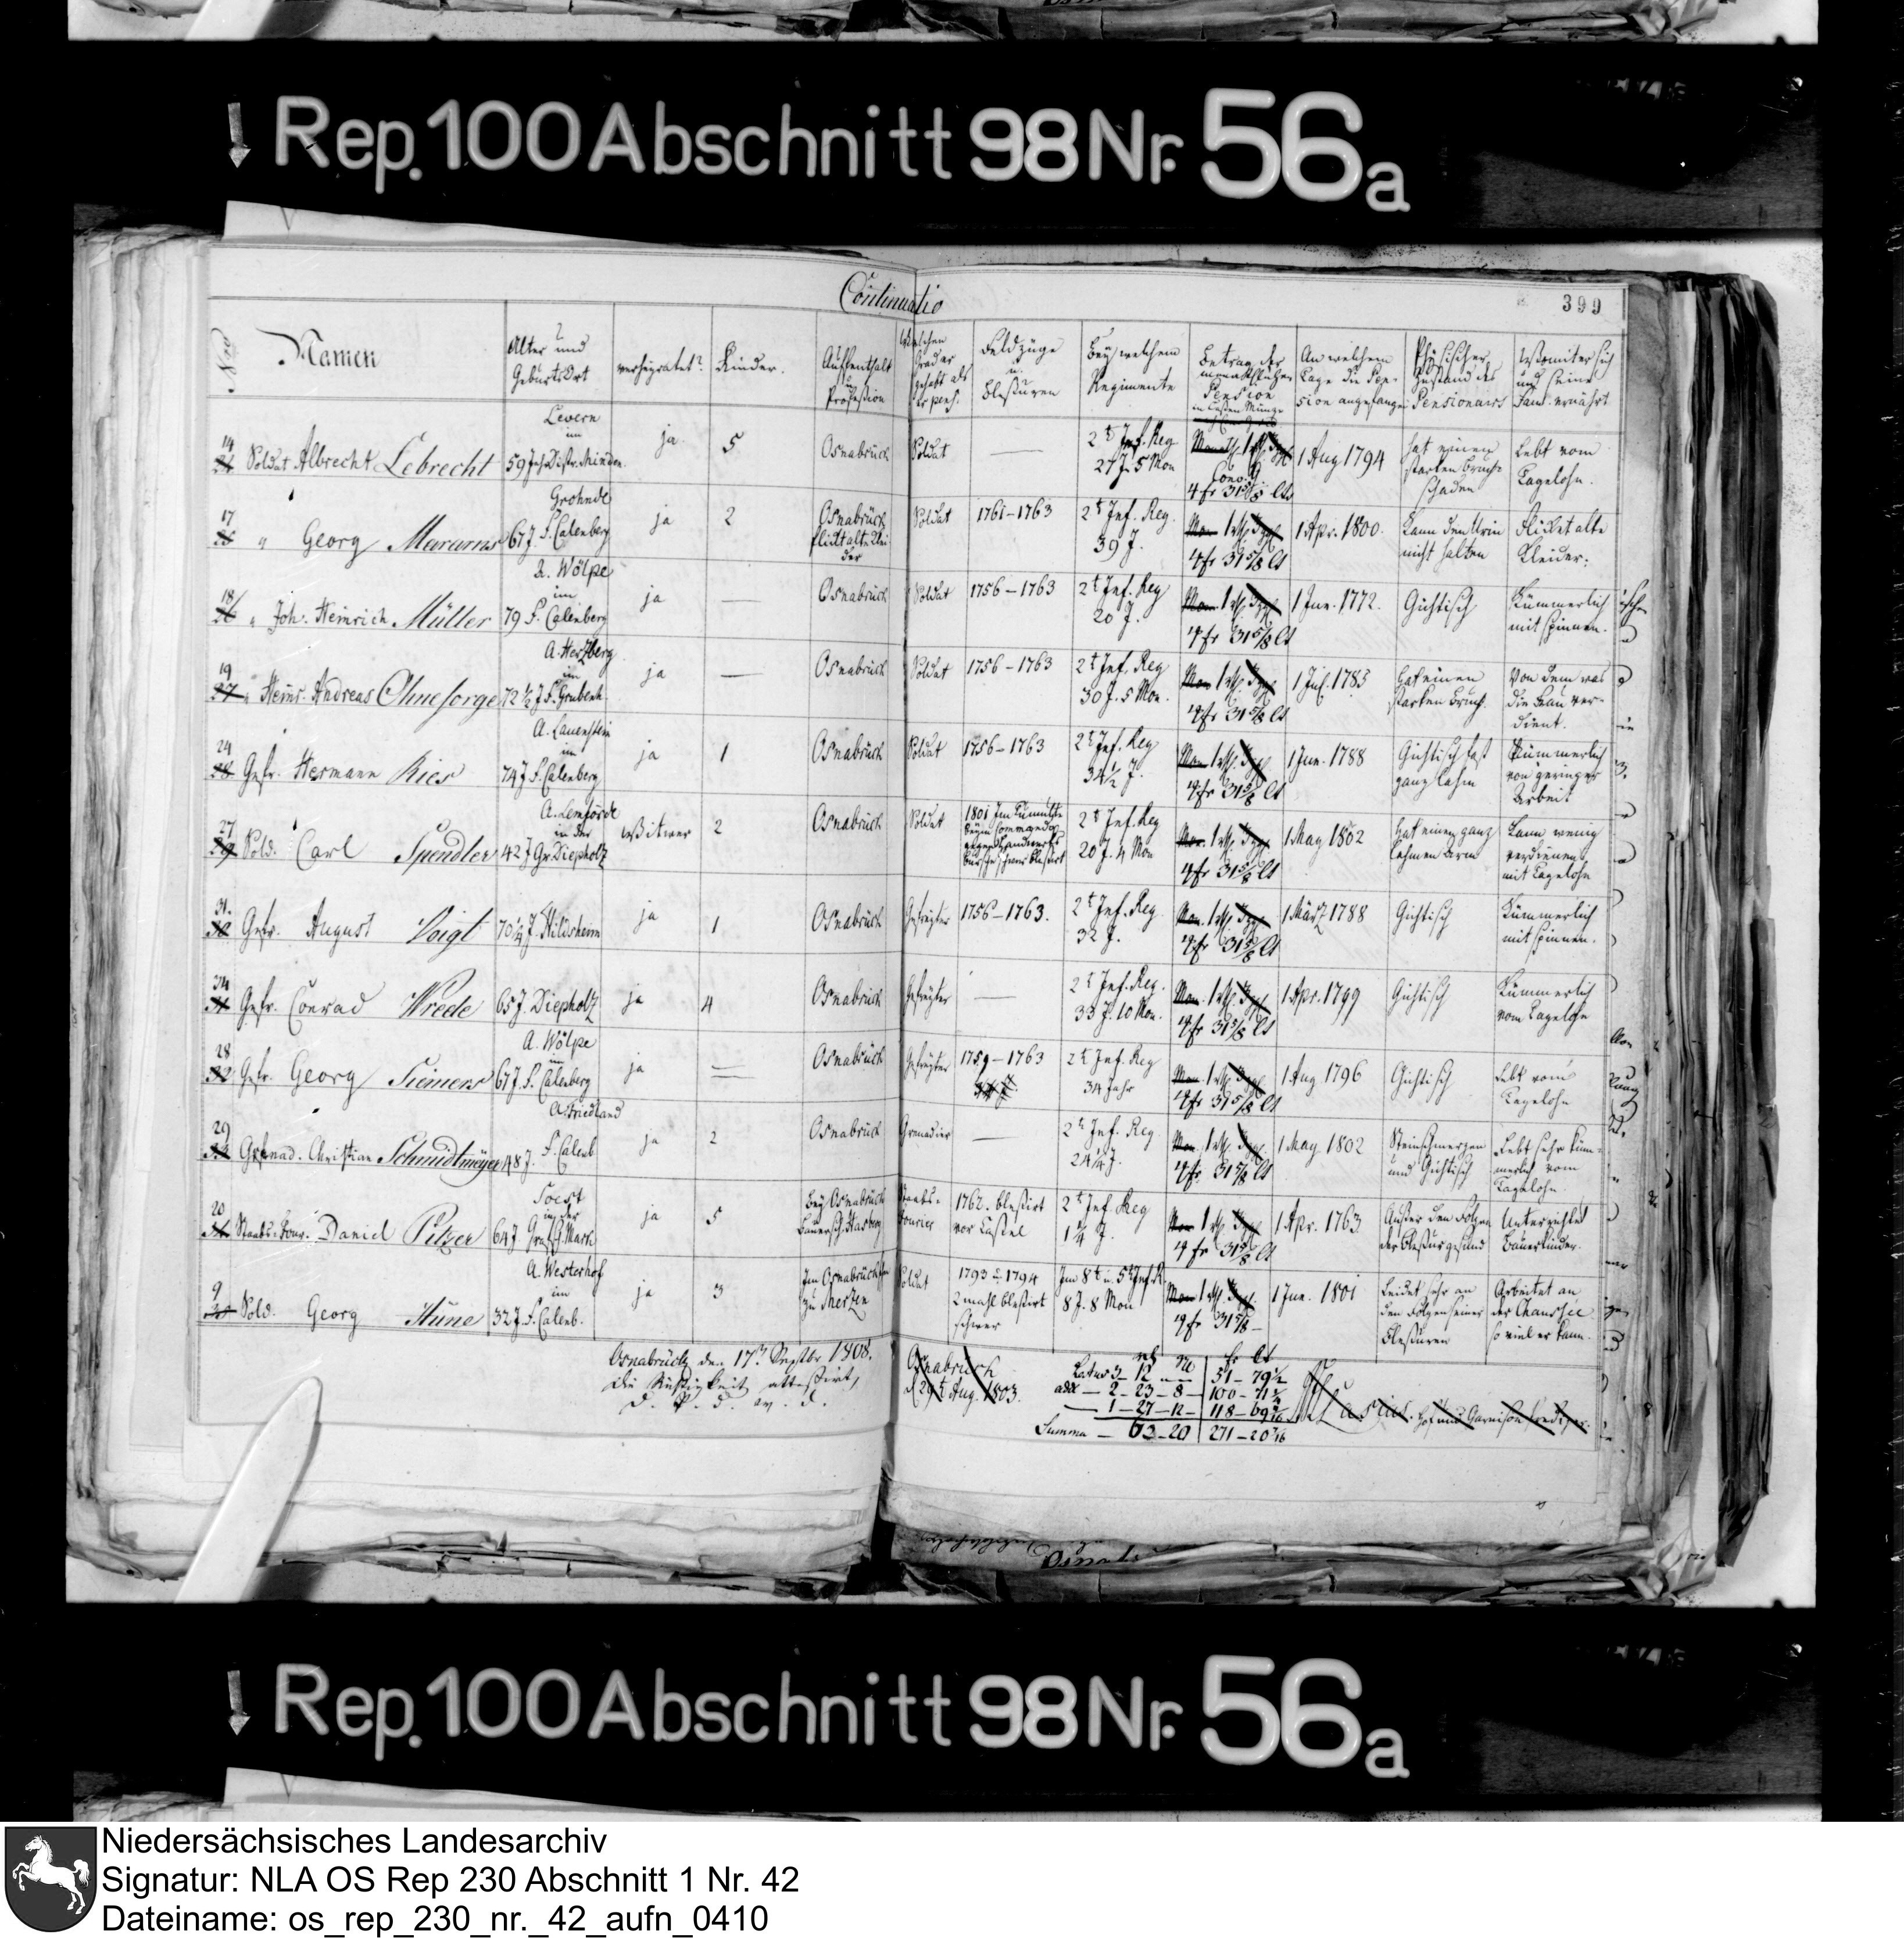 Rep. 100 Abschnitt 98 Nr. 56a
Continuatio
399
Namen
Alter und Geburts Ort
verheyratet?
Kinder.
Auffenthalt u. Profession
Welchen Grad er gehabt als er pens.
Feldzüge u. Blessuren
Bey welchem Regimente
Betrag der monathlichen Pension
An welchem Tage die Pension angefangen
Physischer Zustand des Pensionairs
Womit er sich und seine Fam. ernährt
14 Soldat Albrecht Lebrecht 59 Jah. Distr. Minden Levern im ja. 5 Osnabrück Soldat — 2t Inf. Reg 27 J. 5 Mon 4 fr 31 5/8 Cts 1 Aug 1794 hat einen starken Bruchschaden Lebt vom Tagelohn.
17 " Georg 67 J. Grohnde F. Calenberg ja 2 Osnabrück flickt alte Kleider Soldat 1761-1763 2t Inf. Reg. 39 J. 4 fr 31 5/8 Ct 1 Apr. 1800. Kann den Urin nicht halten Flicket alte Kleider.
18 " Joh. Heinrich Müller 79 A. Wölpe im F. Calenberg ja — Osnabrück Soldat 1756-1763 2t Inf. Reg 20 J. 4 fr 31 5/8 Ct 1 Jun. 1772. Gichtisch Kümmerlich mit Spinnen.
19 " Heinr. Andreas Ohnesorge 72 1/2 J A. Herzberg im F. Grubenh. ja — Osnabrück Soldat 1756-1763 2t Inf. Reg 30 J. 5 Mon. 4 fr 31 5/8 Ct 1 Jul. 1783 Hat einen starken Bruch. Von dem was die Frau verdient.
24 Gefr. Hermann Ries 74 J A. Lauenstein im F. Calenberg ja 1 Osnabrück Soldat 1756-1763 2t Inf. Reg 34 1/2 J. 4 fr 31 5/8 Ct 1 Jun. 1788 Gichtisch fast ganz lahm Kümmerlich von geringer Arbeit
27 Sold. Carl Spendler 42 J A. Lemförde in der Gr. Diepholz Wittwer 2 Osnabrück Soldat 1801 Im Tumulte beym Commando gegen Handwerksbursche schwer blessirt 2t Inf. Reg 20 J. 4 Mon 4 fr 31 5/8 Ct 1 May 1802 Hat einen ganz lahmen Arm Kann wenig verdienen mit Tagelohn
31. Gefr. August Voigt 70 1/4 J. Hildsheim ja 1 Osnabrück Gefreyter 1756-1763. 2t Inf. Reg. 32 J. 4 fr 31 5/8 Ct 1 März 1788 Gichtisch Kümmerlich mit Spinnen.
34 Gefr. Conrad Wrede 65 J. Diepholz ja 4 Osnabrück Gefreyter — 2t Inf. Reg. 33 J. 10 Mon. 4 fr 31 5/8 Ct 1 Apr. 1799 Gichtisch Kümmerlich vom Tagelohn
28 Gefr. Georg Siemens 67 J. A. Wölpe im F. Calenberg ja — Osnabrück Gefreyter 1759-1763 2t Inf. Reg 34 Jahr 4 fr 31 5/8 Ct 1 Aug 1796 Gichtisch Lebt vom Tagelohn
29 Grenad. Christian Schmidtmeyer 48 J. A. Friedland F. Calenb. ja 2 Osnabrück Grenadier — 2t Inf. Reg 24 1/4 J. 4 fr 31 5/8 Ct 1 May 1802 Steinschmerzen und Gichtisch Lebt sehr kümmerlich vom Tagelohn
20 Staabs-Four. Daniel Pitzer 64 J Soest in der Grafs. Mark ja 5 bey Osnabrück Bauersch. Hasberg Staabs-Fourier 1762. blessirt vor Cassel 2t Inf Reg 1 1/4 J. 4 fr 31 5/8 Ct 1 Apr. 1763 Ausser den Folgen der Blessur gesund Unterrichtet Bauerkinder.
9 Sold. Georg Hüne 32 J. A. Westerhof im F. Calenb. ja 3 Im Osnabrückschen zu Merzen Soldat 1793 u. 1794 2 mahl blessirt schwer Im 8t u. 5t Inf. R. 8 J. 8 Mon 4 fr 31 5/8 1 Jun. 1801 Leidet sehr an den Folgen seiner Blessuren Arbeitet an der Chaussee so viel er kann.
Osnabrück den 17t Septbr 1808.
die Richtigkeit attestirt,
Osnabrück
d. 29t Aug. 1803.
Latus 3-12 51-79 1/2
2-23-8 100-71
1-27-12 118-69
Summa 63-20 271-20
Lasius. Hof und Garnison Prediger.
Rep. 100 Abschnitt 98 Nr. 56a
Niedersächsisches Landesarchiv
Signatur: NLA OS Rep 230 Abschnitt 1 Nr. 42
Dateiname: os_rep_230_nr._42_aufn_0410